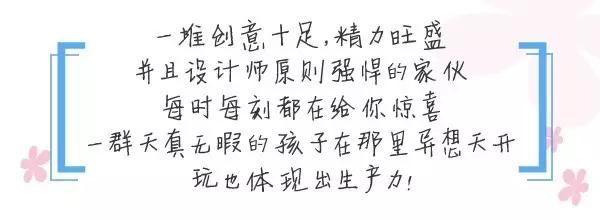 一堆创意十足,精力旺盛
并且设计师原则强悍的家伙
每时每刻都在给你惊喜
一群天真无暇的孩子在那里异想天开
玩也体现出生产力!